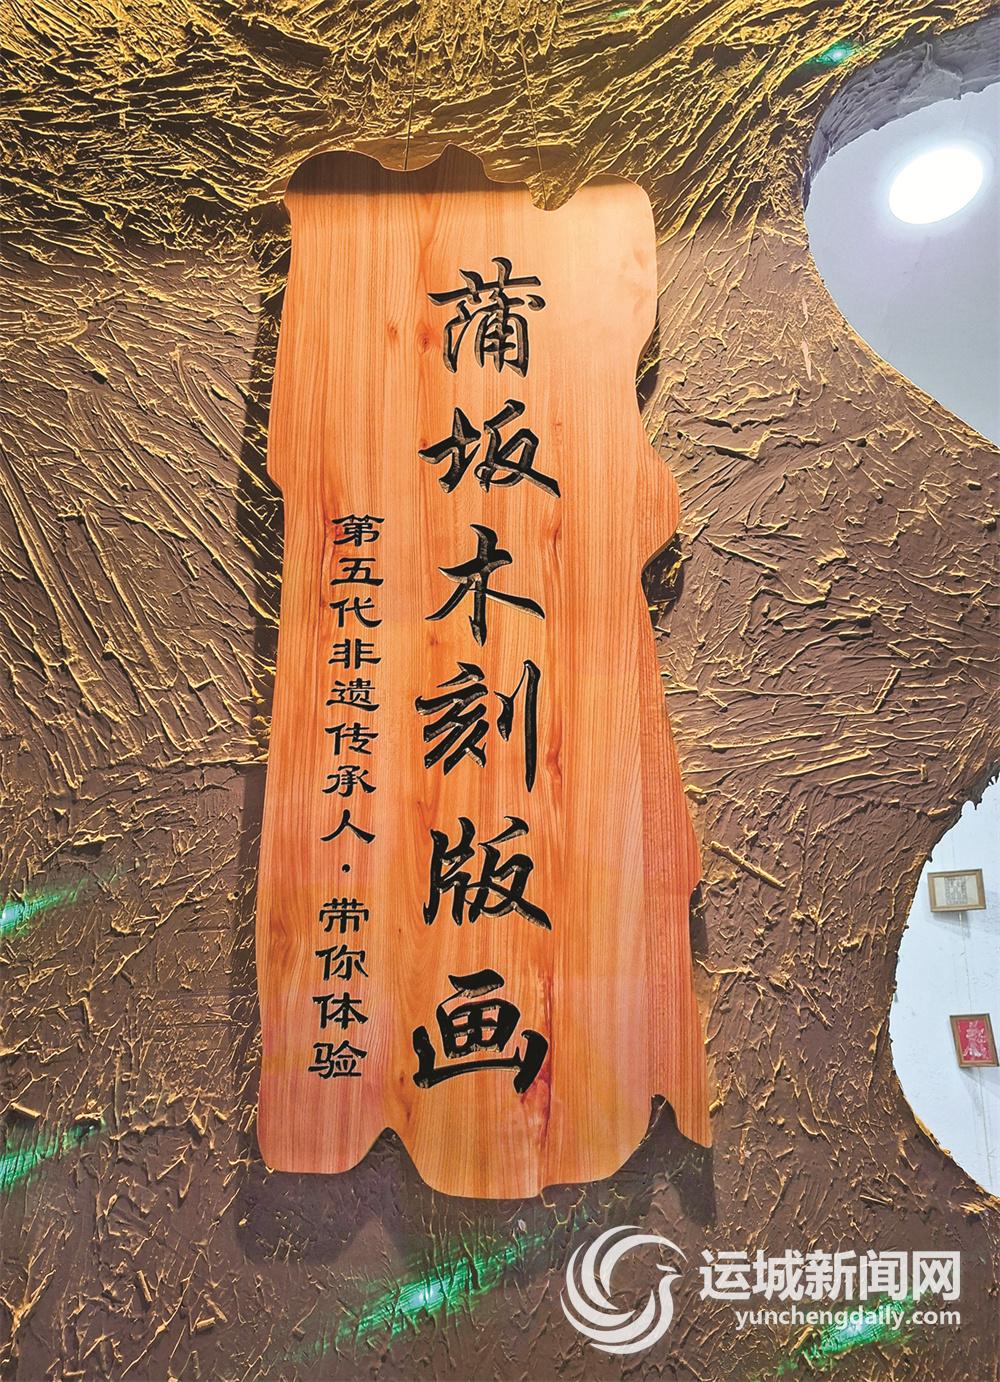 蒲坂木刻版画
第五代非遗传承人·带你体验
运城新闻网
yunchengdaily.com